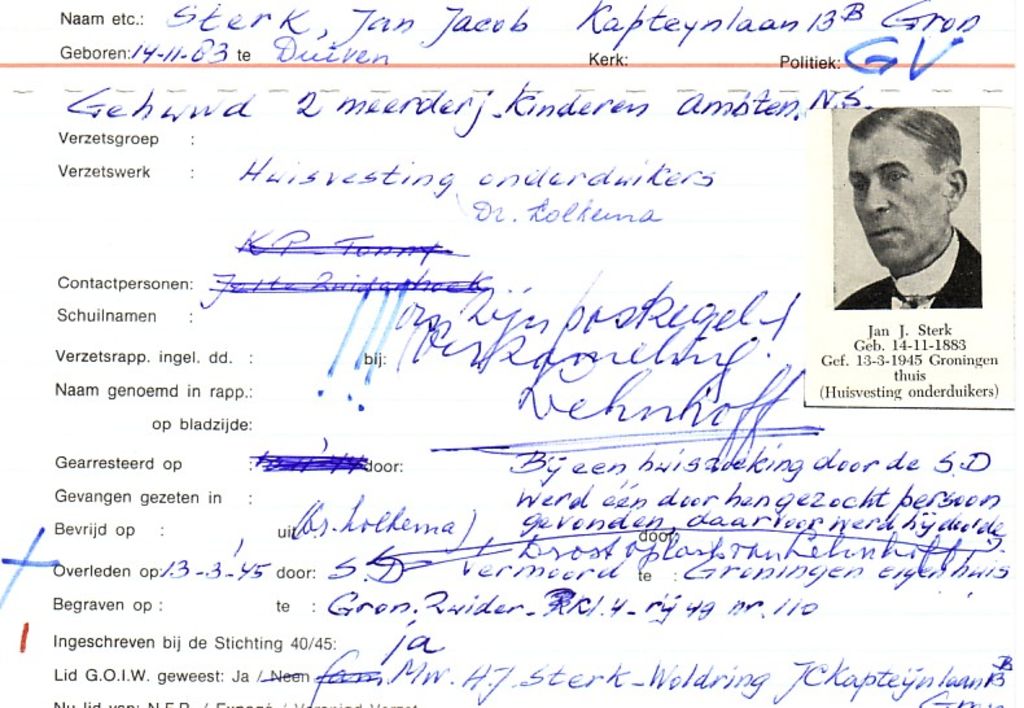 Naam etc.: Sterk, Jan Jacob Kapteynlaan 13B Gron
Geboren: 14-11-83 te Duiven Kerk: Politiek: GV
Gehuwd 2 meerderj. Kinderen Ambten. N.S.
Verzetsgroep :
Verzetswerk : Huisvesting onderduikers
Dr. Kolkema
K.P. Tonny
Contactpersonen:
Schuilnamen :
Verzetsrapp. ingel. dd. : bij: Verzameling
Naam genoemd in rapp.: Lehnhoff
op bladzijde:
Gearresteerd op : door: Bij een huiszoeking door de S.D
Gevangen gezeten in : werd één door hen gezocht persoon
Bevrijd op : uit (Dr. Kolkema) door: gevonden, daarvoor werd hij door de
Drost op last van Lehnhoff
Overleden op: 13-3-45 door: S.D vermoord te : Groningen eigen huis
Begraven op : te : Gron. Zuider- Kl. 4 - rij 49 nr. 110
Ingeschreven bij de Stichting 40/45: ja
Lid G.O.I.W. geweest: Ja / Neen Mw. A.J. Sterk-Woldring JC Kapteijnlaan 13B
Gron
Nu lid van: N.F.R. / Expogé / Verenigd Verzet
Jan J. Sterk
Geb. 14-11-1883
Gef. 13-3-1945 Groningen
thuis
(Huisvesting onderduikers)